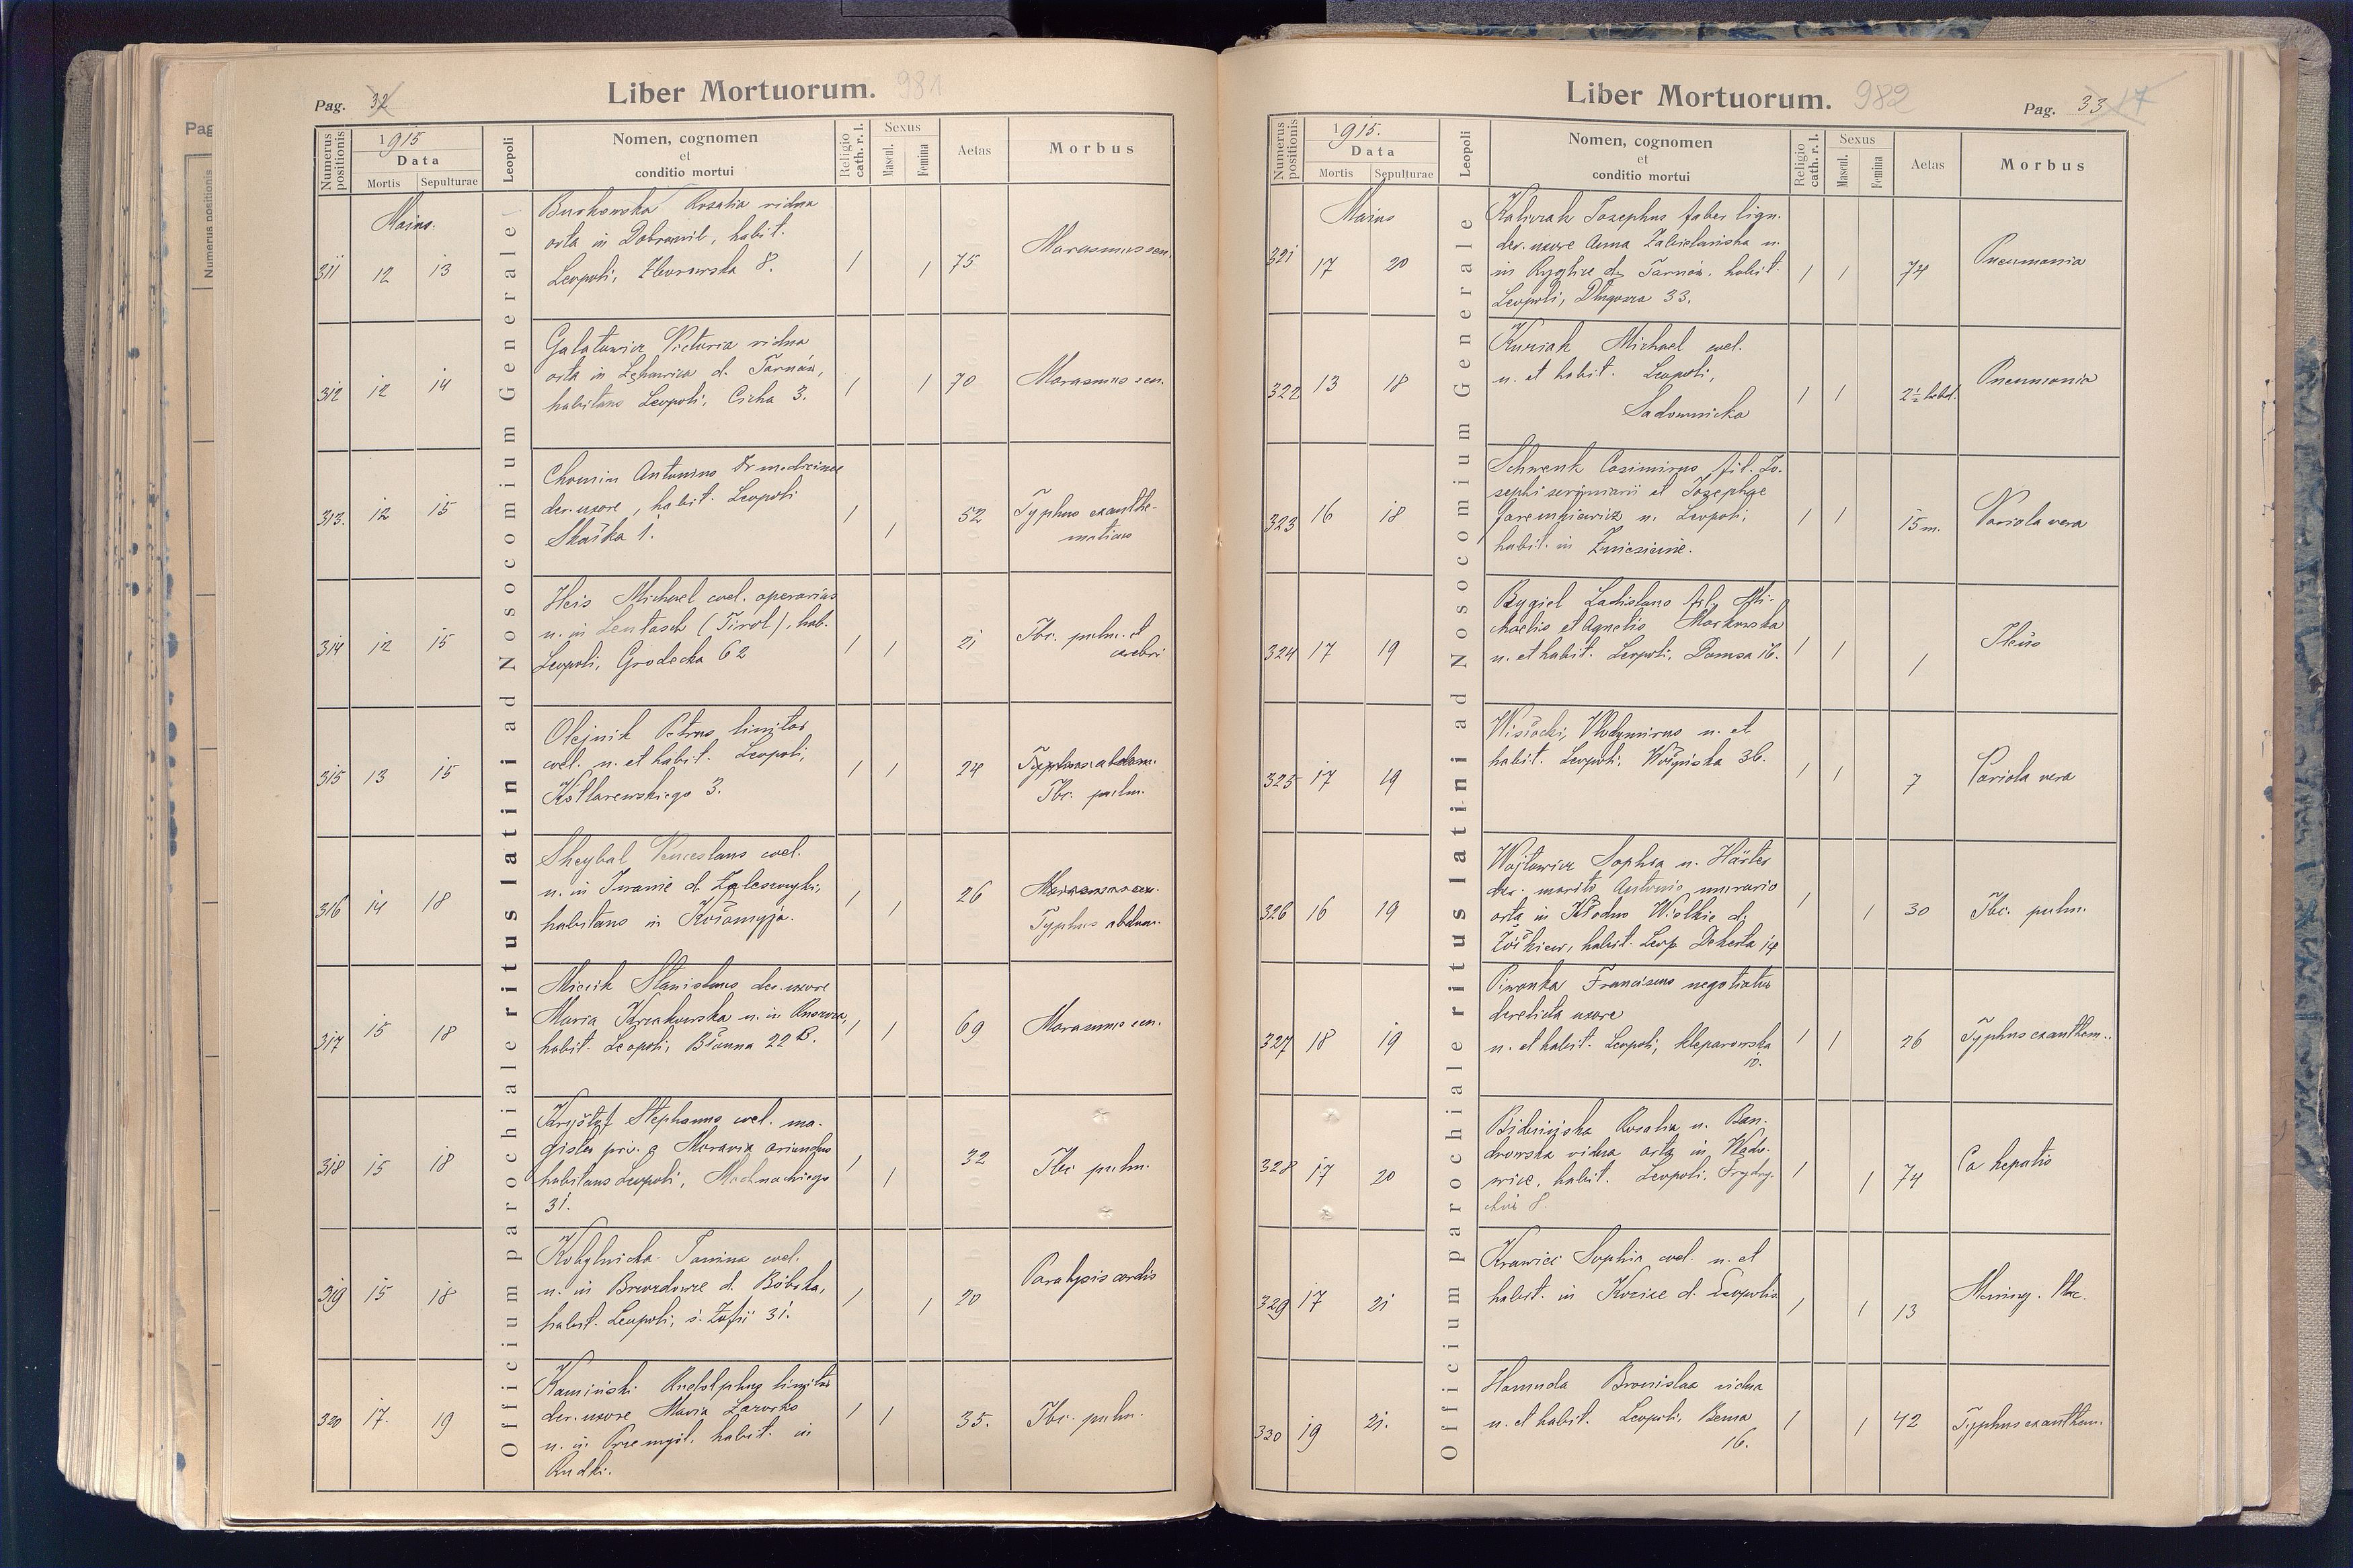 Pag. 32
Liber Mortuorum. 981
Numerus positionis
1915
Data
Mortis Sepulturae
Leopoli
Nomen, cognomen
et
conditio mortui
Religio cath. r. l.
Sexus
Mascul. Femina
Aetas
Morbus
Officium parochiale ritus latini ad Nosocomium Generale
Maius.
311 12 13
Burkowska Rosalia vidua
orta in Dobromil, habit.
Leopoli, Zborowska 8.
1 1 75 Marasmus sen.
312 12 14
Galatowicz Victoria vidua
orta in Łękawica d. Tarnów,
habitans Leopoli, Cicha 3.
1 1 70 Marasmus sen.
313. 12 15
Chomin Antonius Dr medicinae
der. uxore, habit. Leopoli
Skarbka 1.
1 1 52 Typhus exanthe-
maticus
314 12 15
Heis Michael cael. operarius
n. in Leutasch (Tirol), hab.
Leopoli, Grodecka 62
1 1 21 Tbc. pulm. et
cerebri
315 13 15
Olejnik Petrus limitor
cael. n. et habit. Leopoli,
Kotlarewskiego 3.
1 1 24 Typhus abdom.
Tbc. pulm.
316 14 18
Sheybal Venceslaus cael.
n. in Iwanie d. Zaleszczyki,
habitans in Kołomyja.
1 1 26 Marasmus sen.
Typhus abdom.
317 15 18
Miecik Stanislaus der. uxore
Maria Krzakowska n. in
habit. Leopoli, Błonna 22 B.
1 1 69 Marasmus sen.
318 15 18
Krysztof Stephanus cael. ma-
gister priv. e Moravia oriundus
habitans Leopoli, Mochnackiego
31.
1 1 32 Tbc pulm.
319 15 18
Kobylnicka Janina cael.
n. in Brzozdowce d. Bóbrka,
habit. Leopoli, ś. Zofii 31.
1 1 20 Paralysis cordis
320 17. 19
Kamiński Rudolphus
der. uxore Maria Lazorko
n. in Przemyśl, habit. in
Rudki.
1 1 35. Tbc. pulm.
Liber Mortuorum. 982
Pag. 33 17
Numerus positionis
1915.
Data
Mortis Sepulturae
Leopoli
Nomen, cognomen
et
conditio mortui
Religio cath. r. l.
Sexus
Mascul. Femina
Aetas
Morbus
Officium parochiale ritus latini ad Nosocomium Generale
Maius
321 17 20
Kaliwrak Josephus faber lign.
der. uxore Anna n.
in Ryglice d. Tarnów. habit.
Leopoli, Długosza 33.
1 1 74 Pneumonia
322 13 18
Kuriak Michael cael.
n. et habit. Leopoli,
Sadownicka
1 1 2½ hebd. Pneumonia
323 16 18
Schwenk Casimirus fil. Jo-
sephi scriniarii et Josephae
Jaremkiewicz n. Leopoli,
habit. in Zniesienie.
1 1 15 m. Variola vera
324 17 19
Bzygiel Ladislaus fil. Mi-
chaelis et Agnetis Markowska
n. et habit. Leopoli, Domsa 16.
1 1 1 Ileus
325 17 19
Wisłocki, Vlodymirus n. et
habit. Leopoli, Wołyńska 36.
1 1 7 Variola vera
326 16 19
Wojtowicz Sophia n. Härter
der. marito Antonio murario
orta in Kłodno Wielkie d.
Żółkiew, habit. Leop. Dekerta 14
1 1 30 Tbc. pulm.
327 18 19
Piwonka Franciscus negotiator
derelicta uxore
n. et habit. Leopoli, Kleparowska
10.
1 1 26 Typhus exanthem.
328 17 20
Bidzińska Rosalia n. Ban-
drowska vidua orta in Wado-
wice, habit. Leopoli, Frydry-
chów 8.
1 1 74 Ca hepatis
329 17 21
Krawiec Sophia cael. n. et
habit. in Kozice d. Leopolis
1 1 13 Mening. tbc.
330 19 21.
Hamuda Bronislaa vidua
n. et habit. Leopoli, Bema
16.
1 1 42 Typhus exanthem.